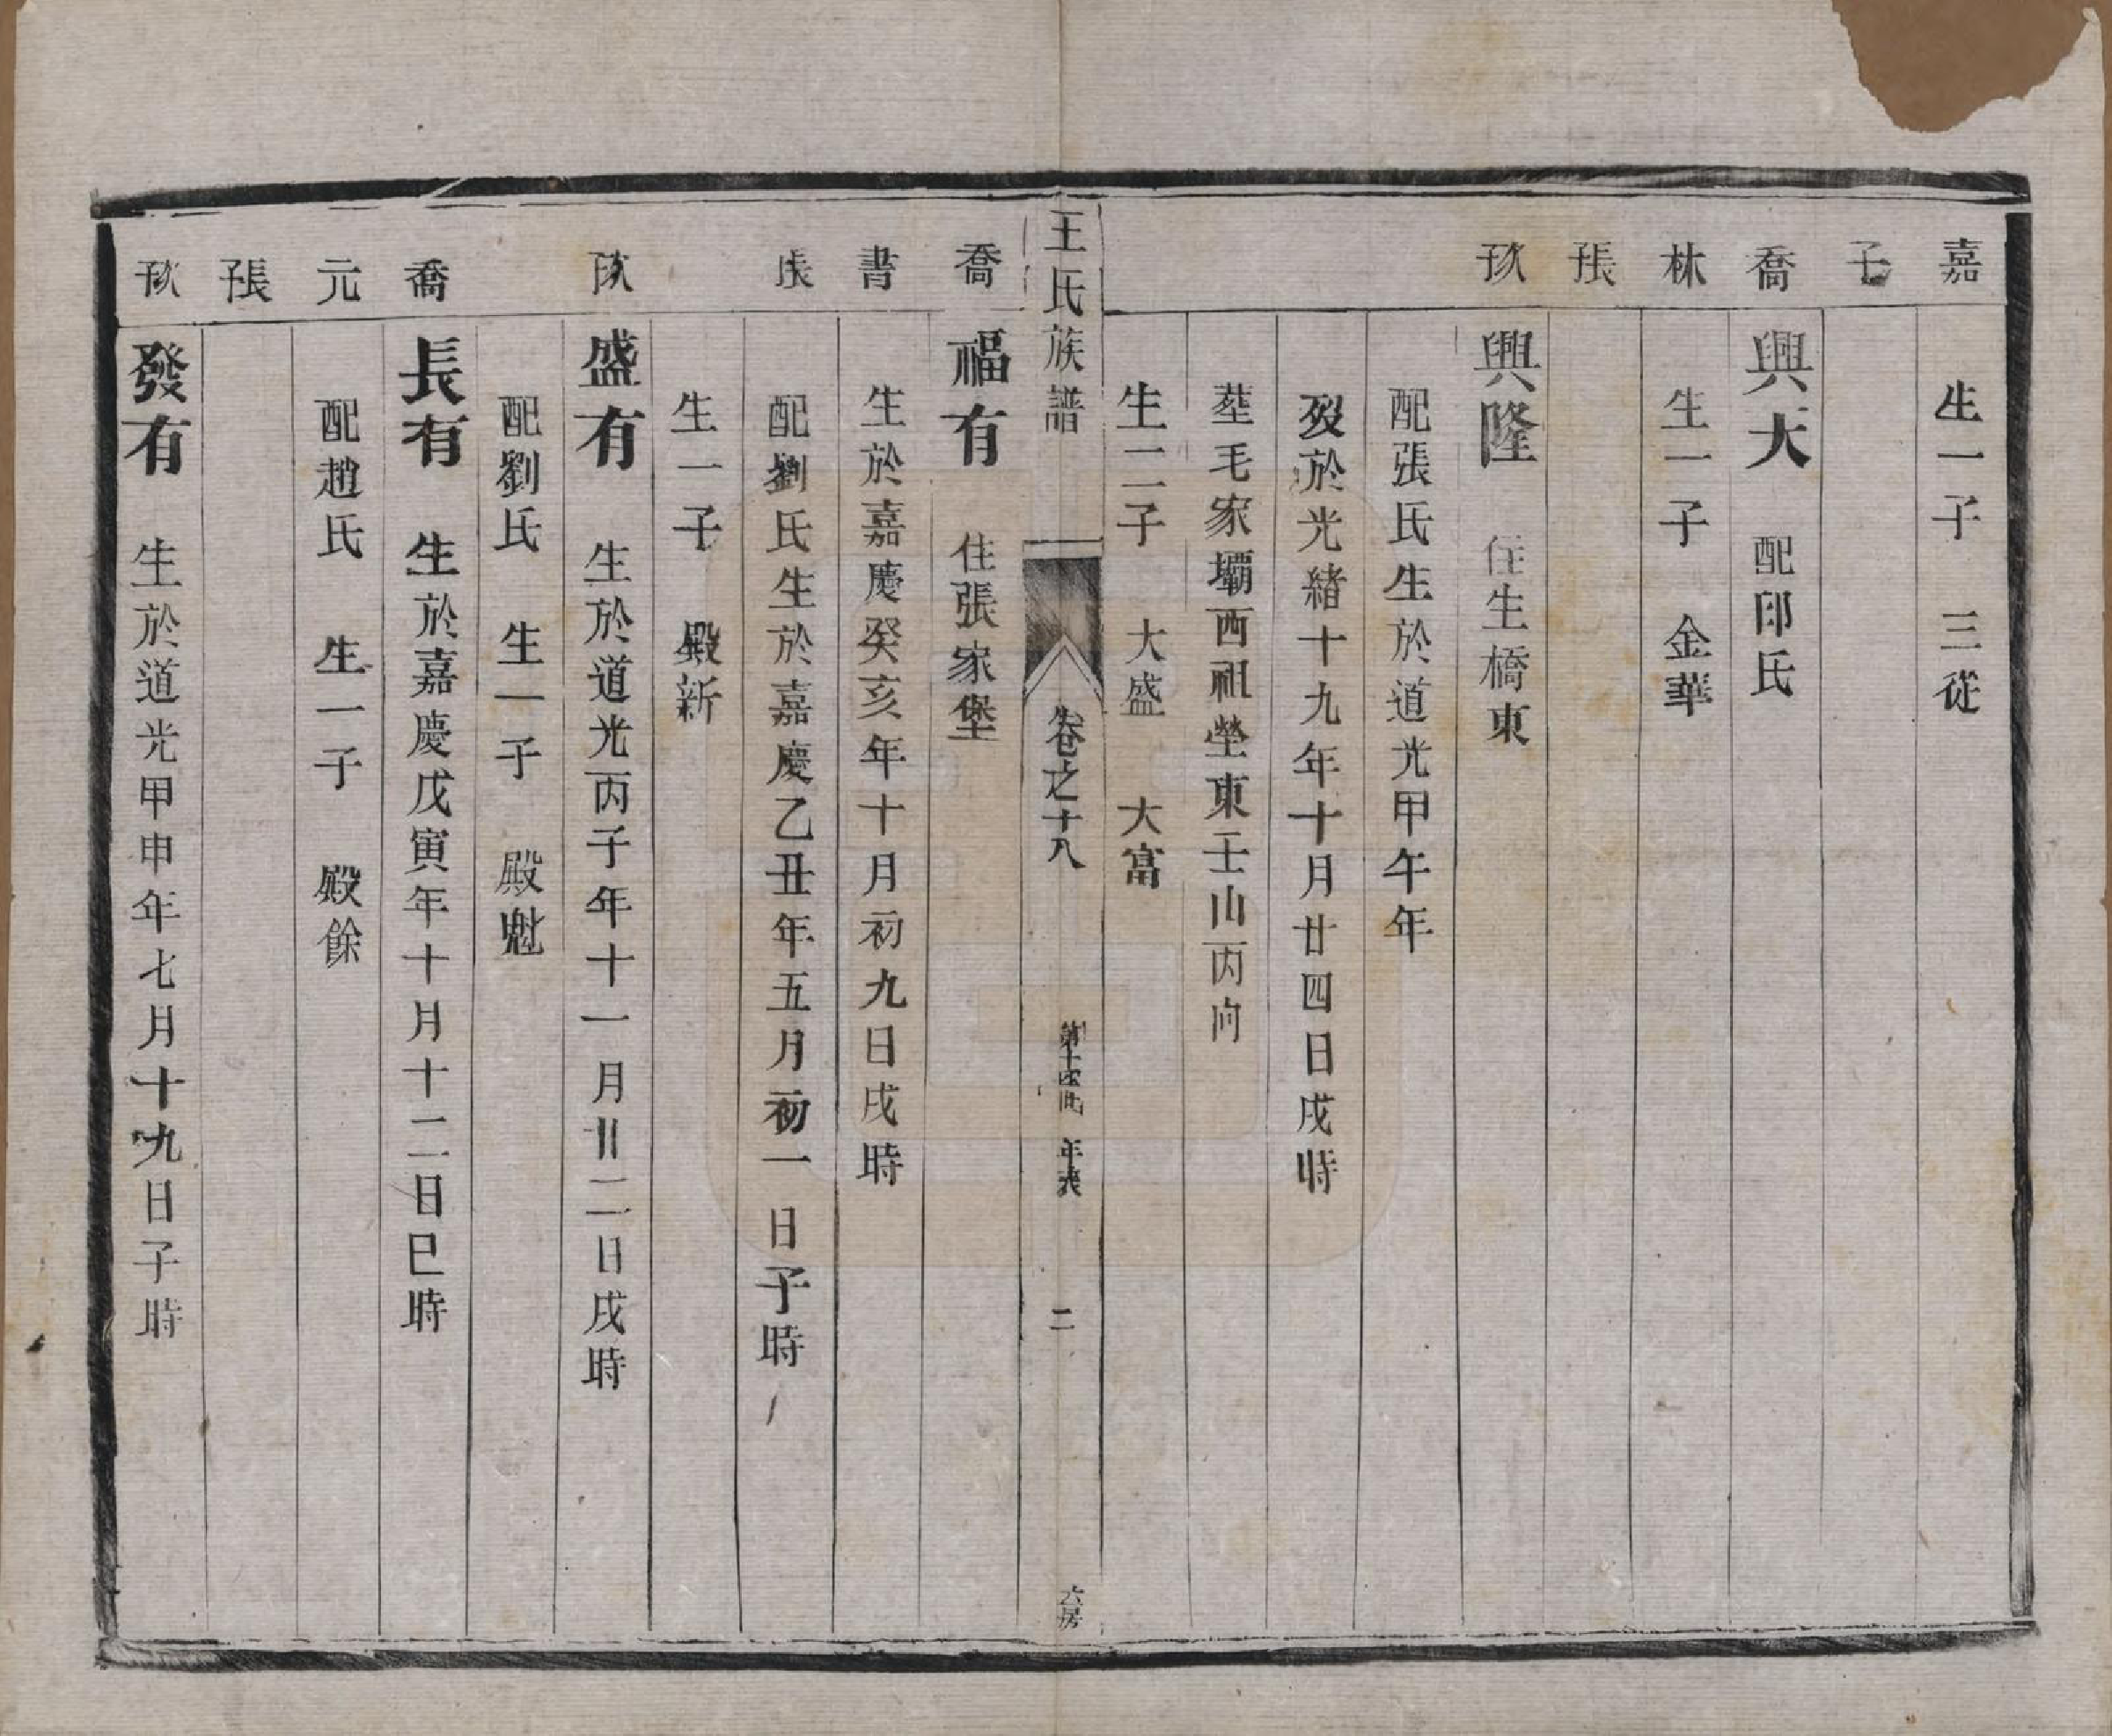 嘉 生一子 三從
子
喬 興大 配邱氏
林 生一子 金華
張
玖 興隆 住生橋東
配張氏生於道光甲午年
歿於光緒十九年十月廿四日戌時
塟毛家壩西祖塋東壬山丙向
生二子 大盛 大富
王氏族譜 卷之十八 年表 二 六房
喬 福有 住張家堡
書 生於嘉慶癸亥年十月初九日戌時
張 配劉氏生於嘉慶乙丑年五月初一日子時
生一子 殿新
玖 盛有 生於道光丙子年十一月廿二日戌時
配劉氏 生一子 殿魁
喬 長有 生於嘉慶戊寅年十月十二日巳時
元 配趙氏 生一子 殿餘
張
玖 發有 生於道光甲申年七月十九日子時